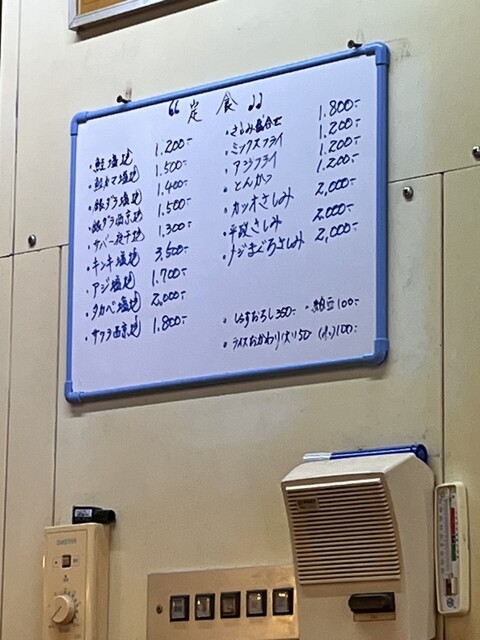 “ 定食 ”
・鮭塩焼 1,200-
・鮭カマ塩焼 1,500-
・銀ダラ塩焼 1,400-
・銀ダラ西京焼 1,500-
・サバ一夜干焼 1,300-
・キンキ塩焼 3,500-
・アジ塩焼 1,700-
・タカベ塩焼 2,000-
・サワラ西京焼 1,800-
・さしみ盛合せ 1,800-
・ミックスフライ 1,200-
・アジフライ 1,200-
・とんかつ 1,200-
・カツオさしみ 2,000-
・平政さしみ 2,000-
・メジまぐろさしみ 2,000-
・しらすおろし350- ・納豆100-
・ライスおかわり(大)150 (小)100-